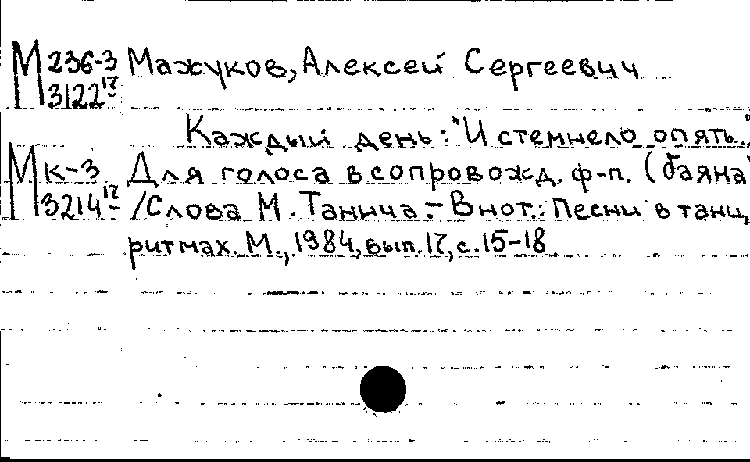 М 236-3 Мажуков, Алексей Сергеевич
3122 17
Каждый день: "И стемнело опять."
М к-3 Для голоса в сопровожд. ф-п. (баяна
3214 17 /Слова М. Танича. - В нот.: Песни в танц.
ритмах. М., 1984, вып. 17, с. 15-18